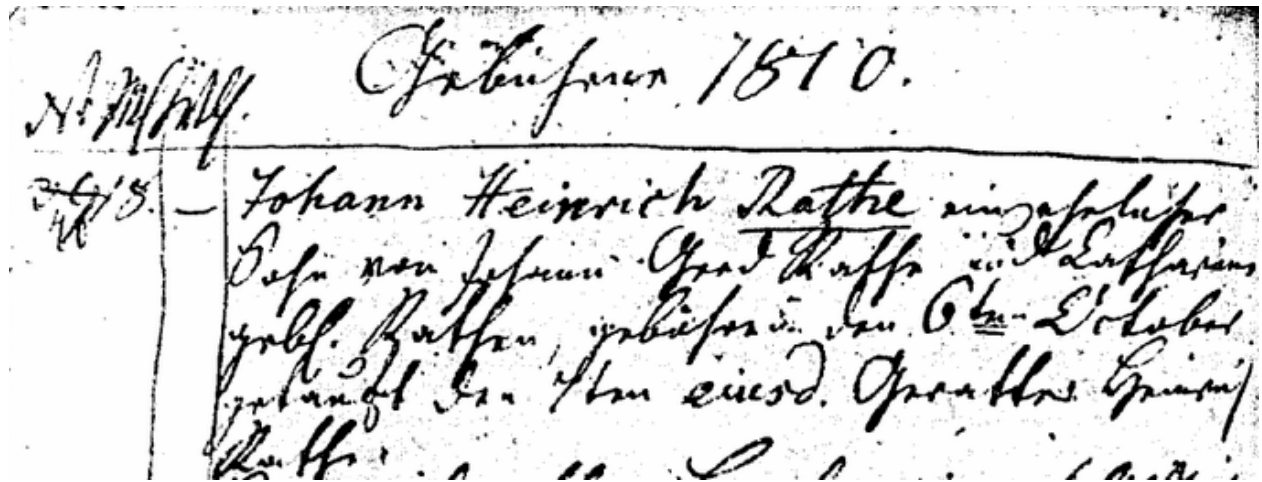 Gebohrene 1810.
Johann Heinrich Rathe ein ehelicher
Sohn von Johann Gerd Rathe und Catharine
gebh. Rathen, gebohren den 6ten October
getauft den 7ten eiusd. Gevatter Heinrich
Rathe.